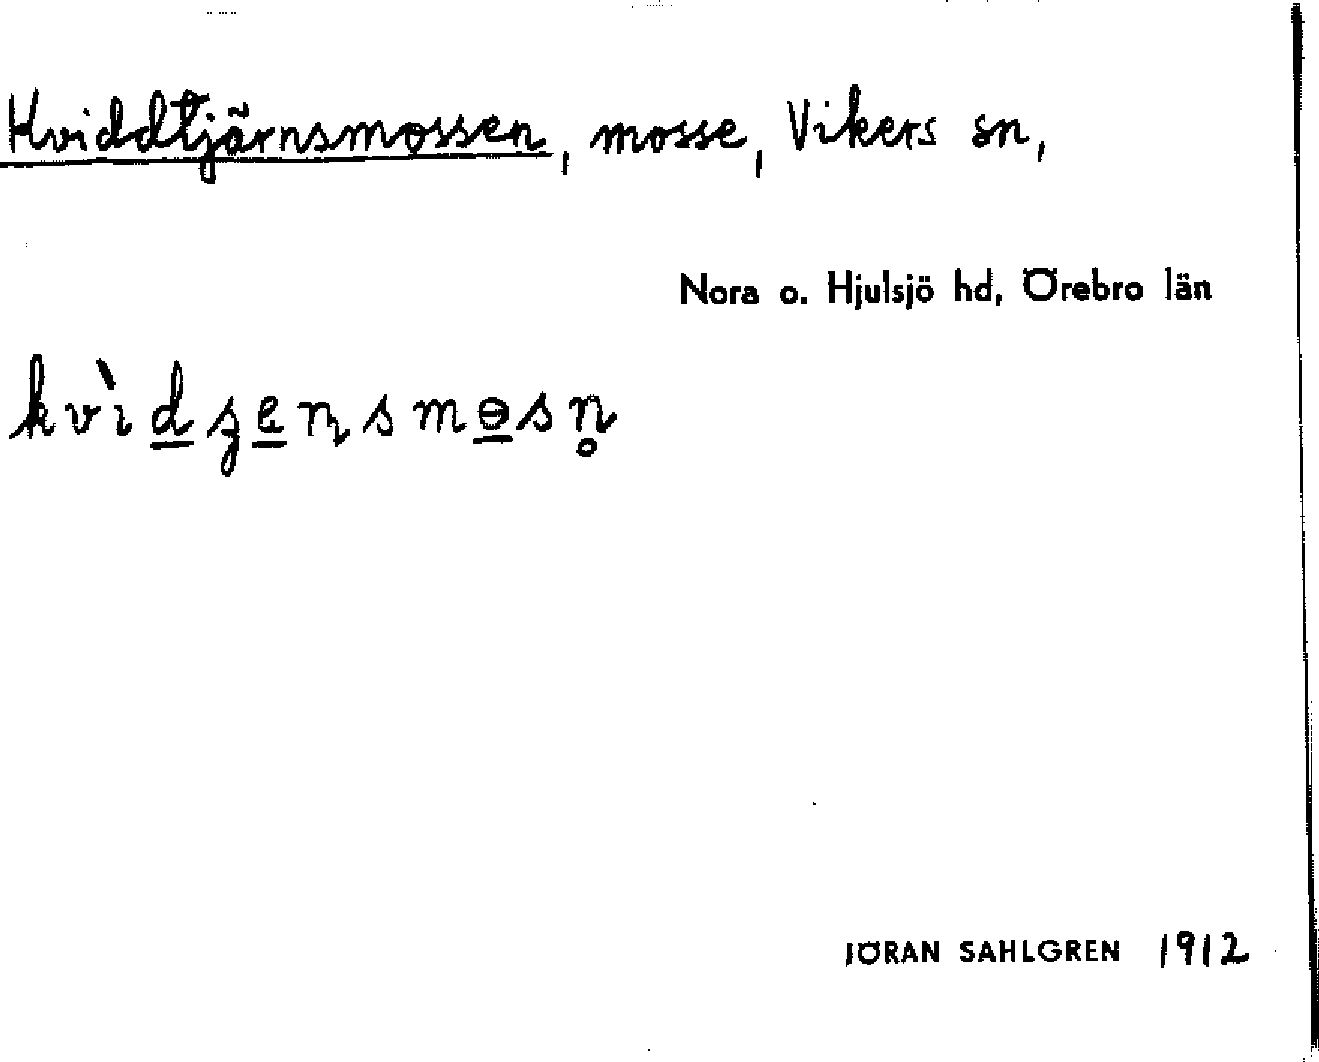 Kviddtjärnsmossen, mosse, Vikers sn,
Nora o. Hjulsjö hd, Örebro län
kvìdʒen̨smɵsn̥
JÖRAN SAHLGREN 1912